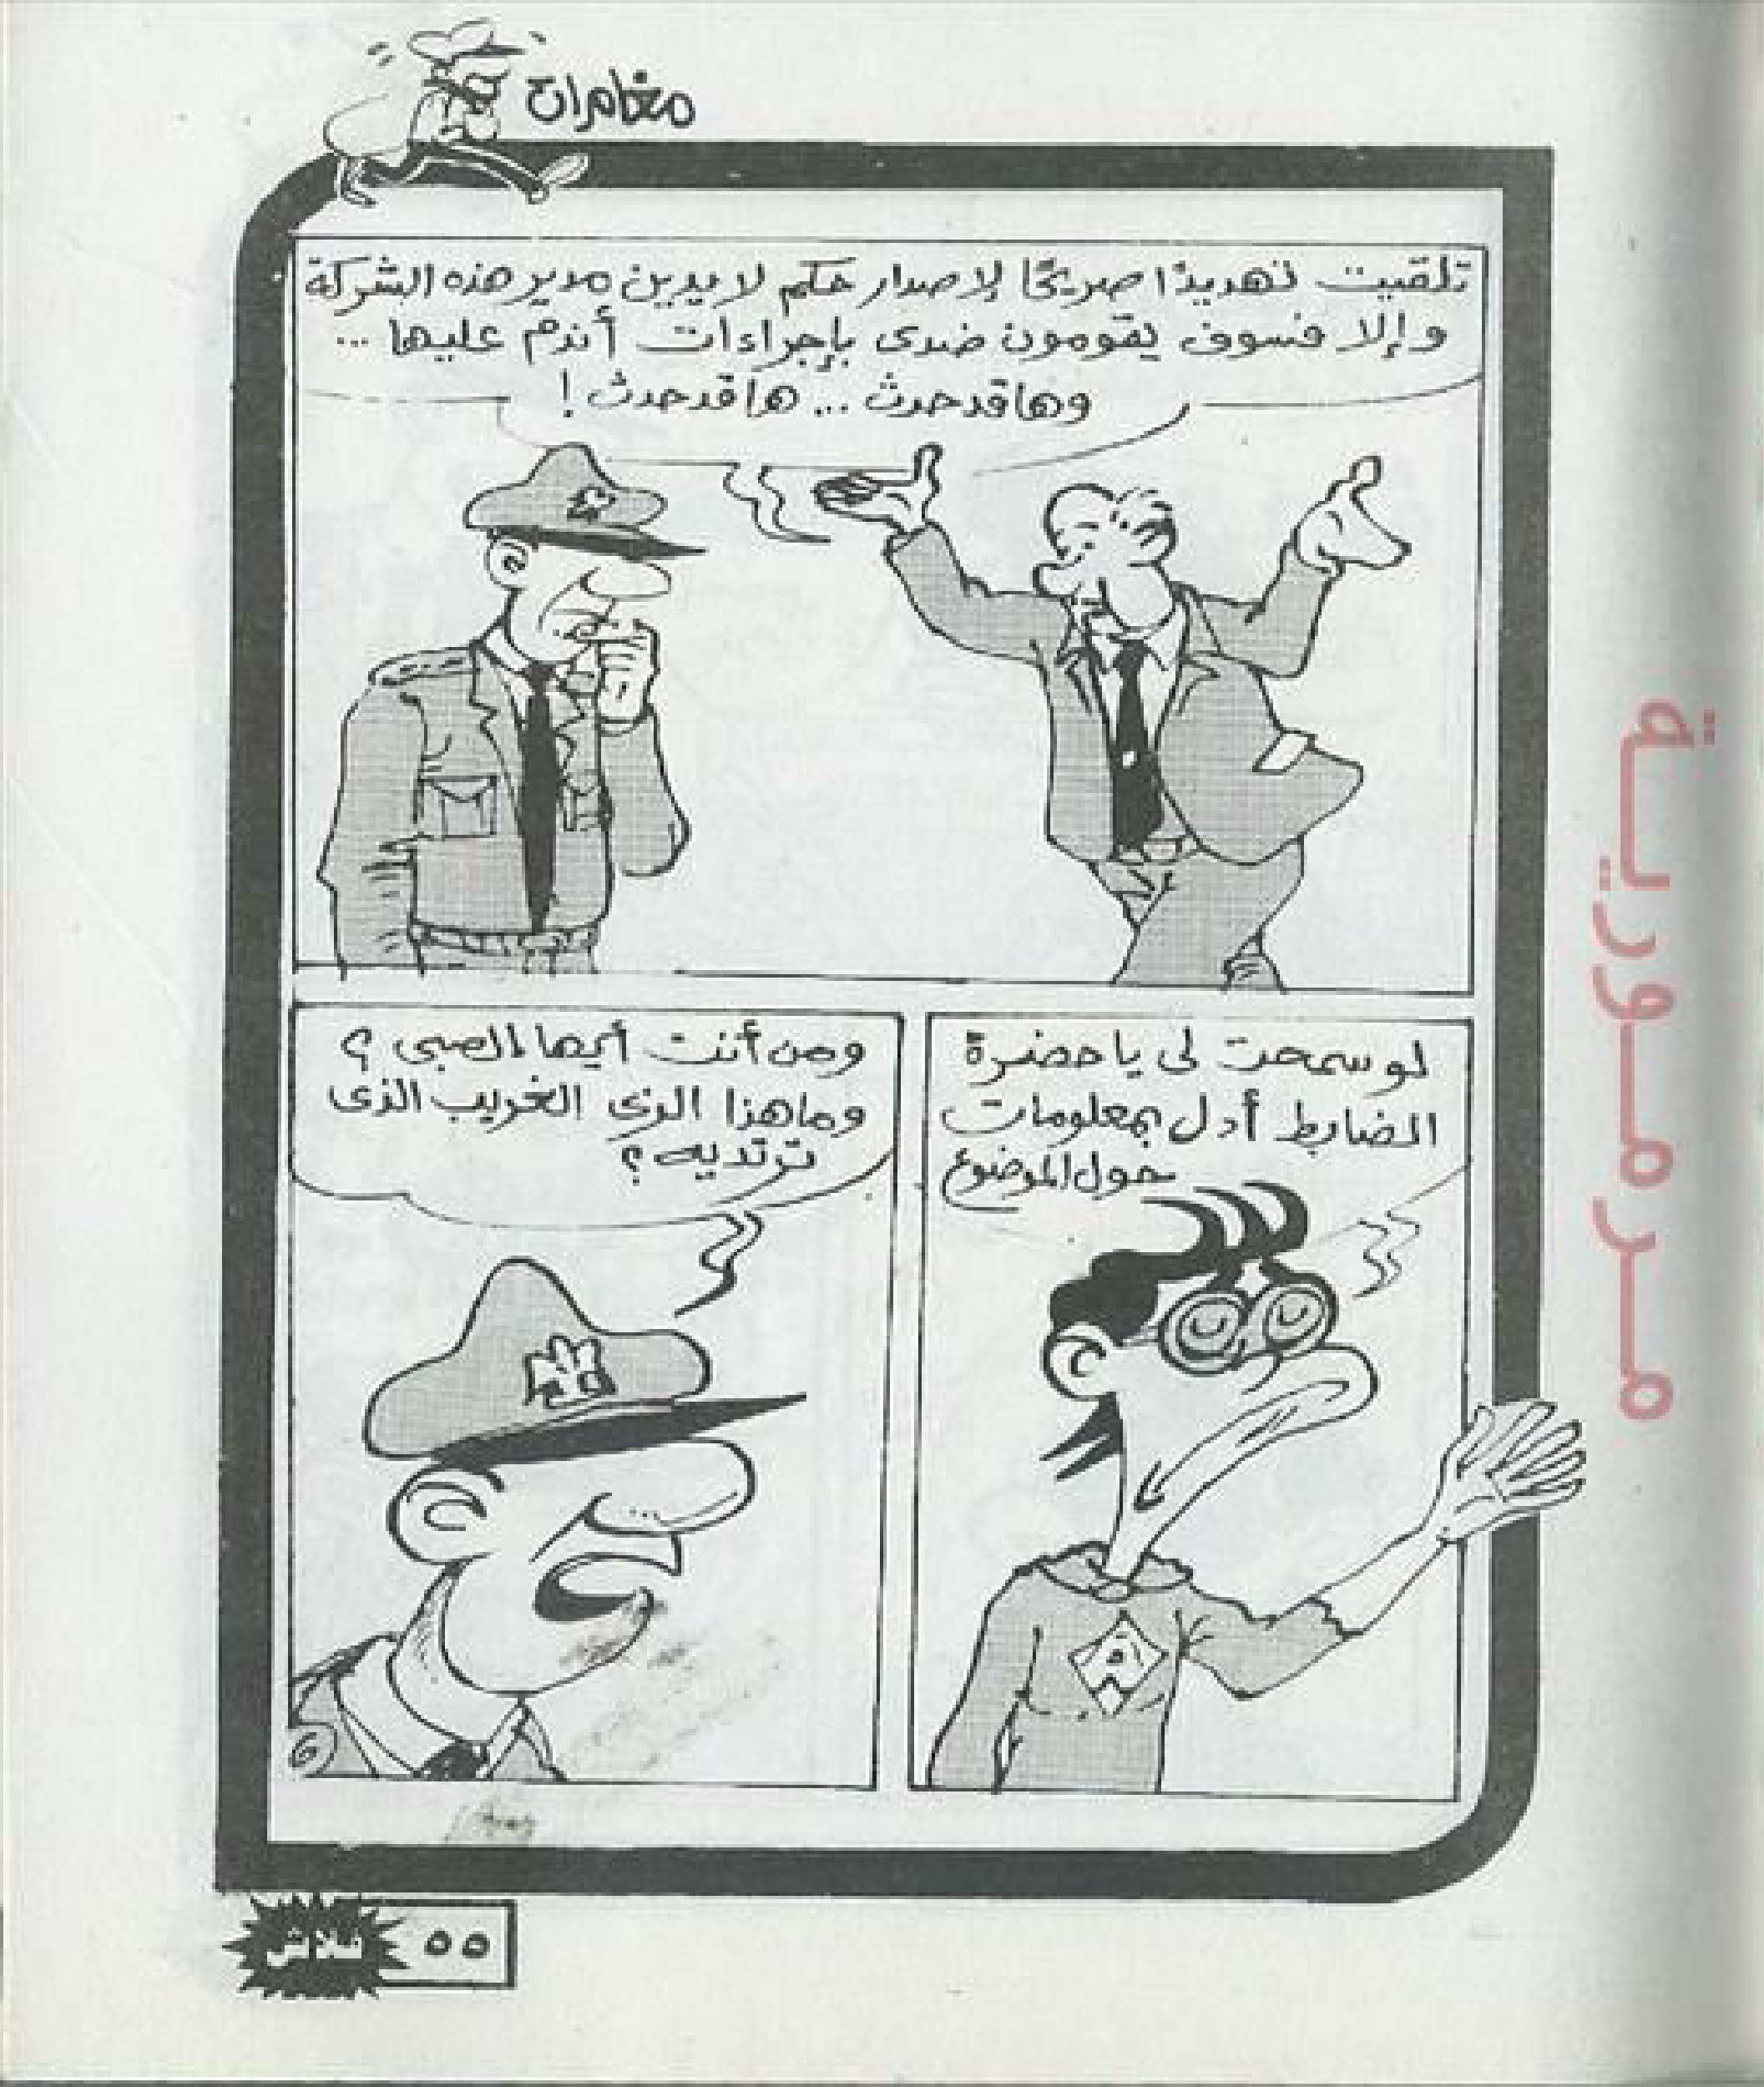 مغامرات
تلقيت تهديدًا صريحًا لإصدار حكم لا يدين مدير هذه الشركة
وإلا فسوف يقومون ضدى بإجراءات أندم عليها ...
وها قد حدث ... ها قد حدث !
لو سمحت لى يا حضرة
الضابط أدل بمعلومات
حول الموضوع
ومن أنت أيها الصبى ؟
وما هذا الزى الغريب الذى
ترتديه ؟
6
٥٥
فلاش
مرمورية